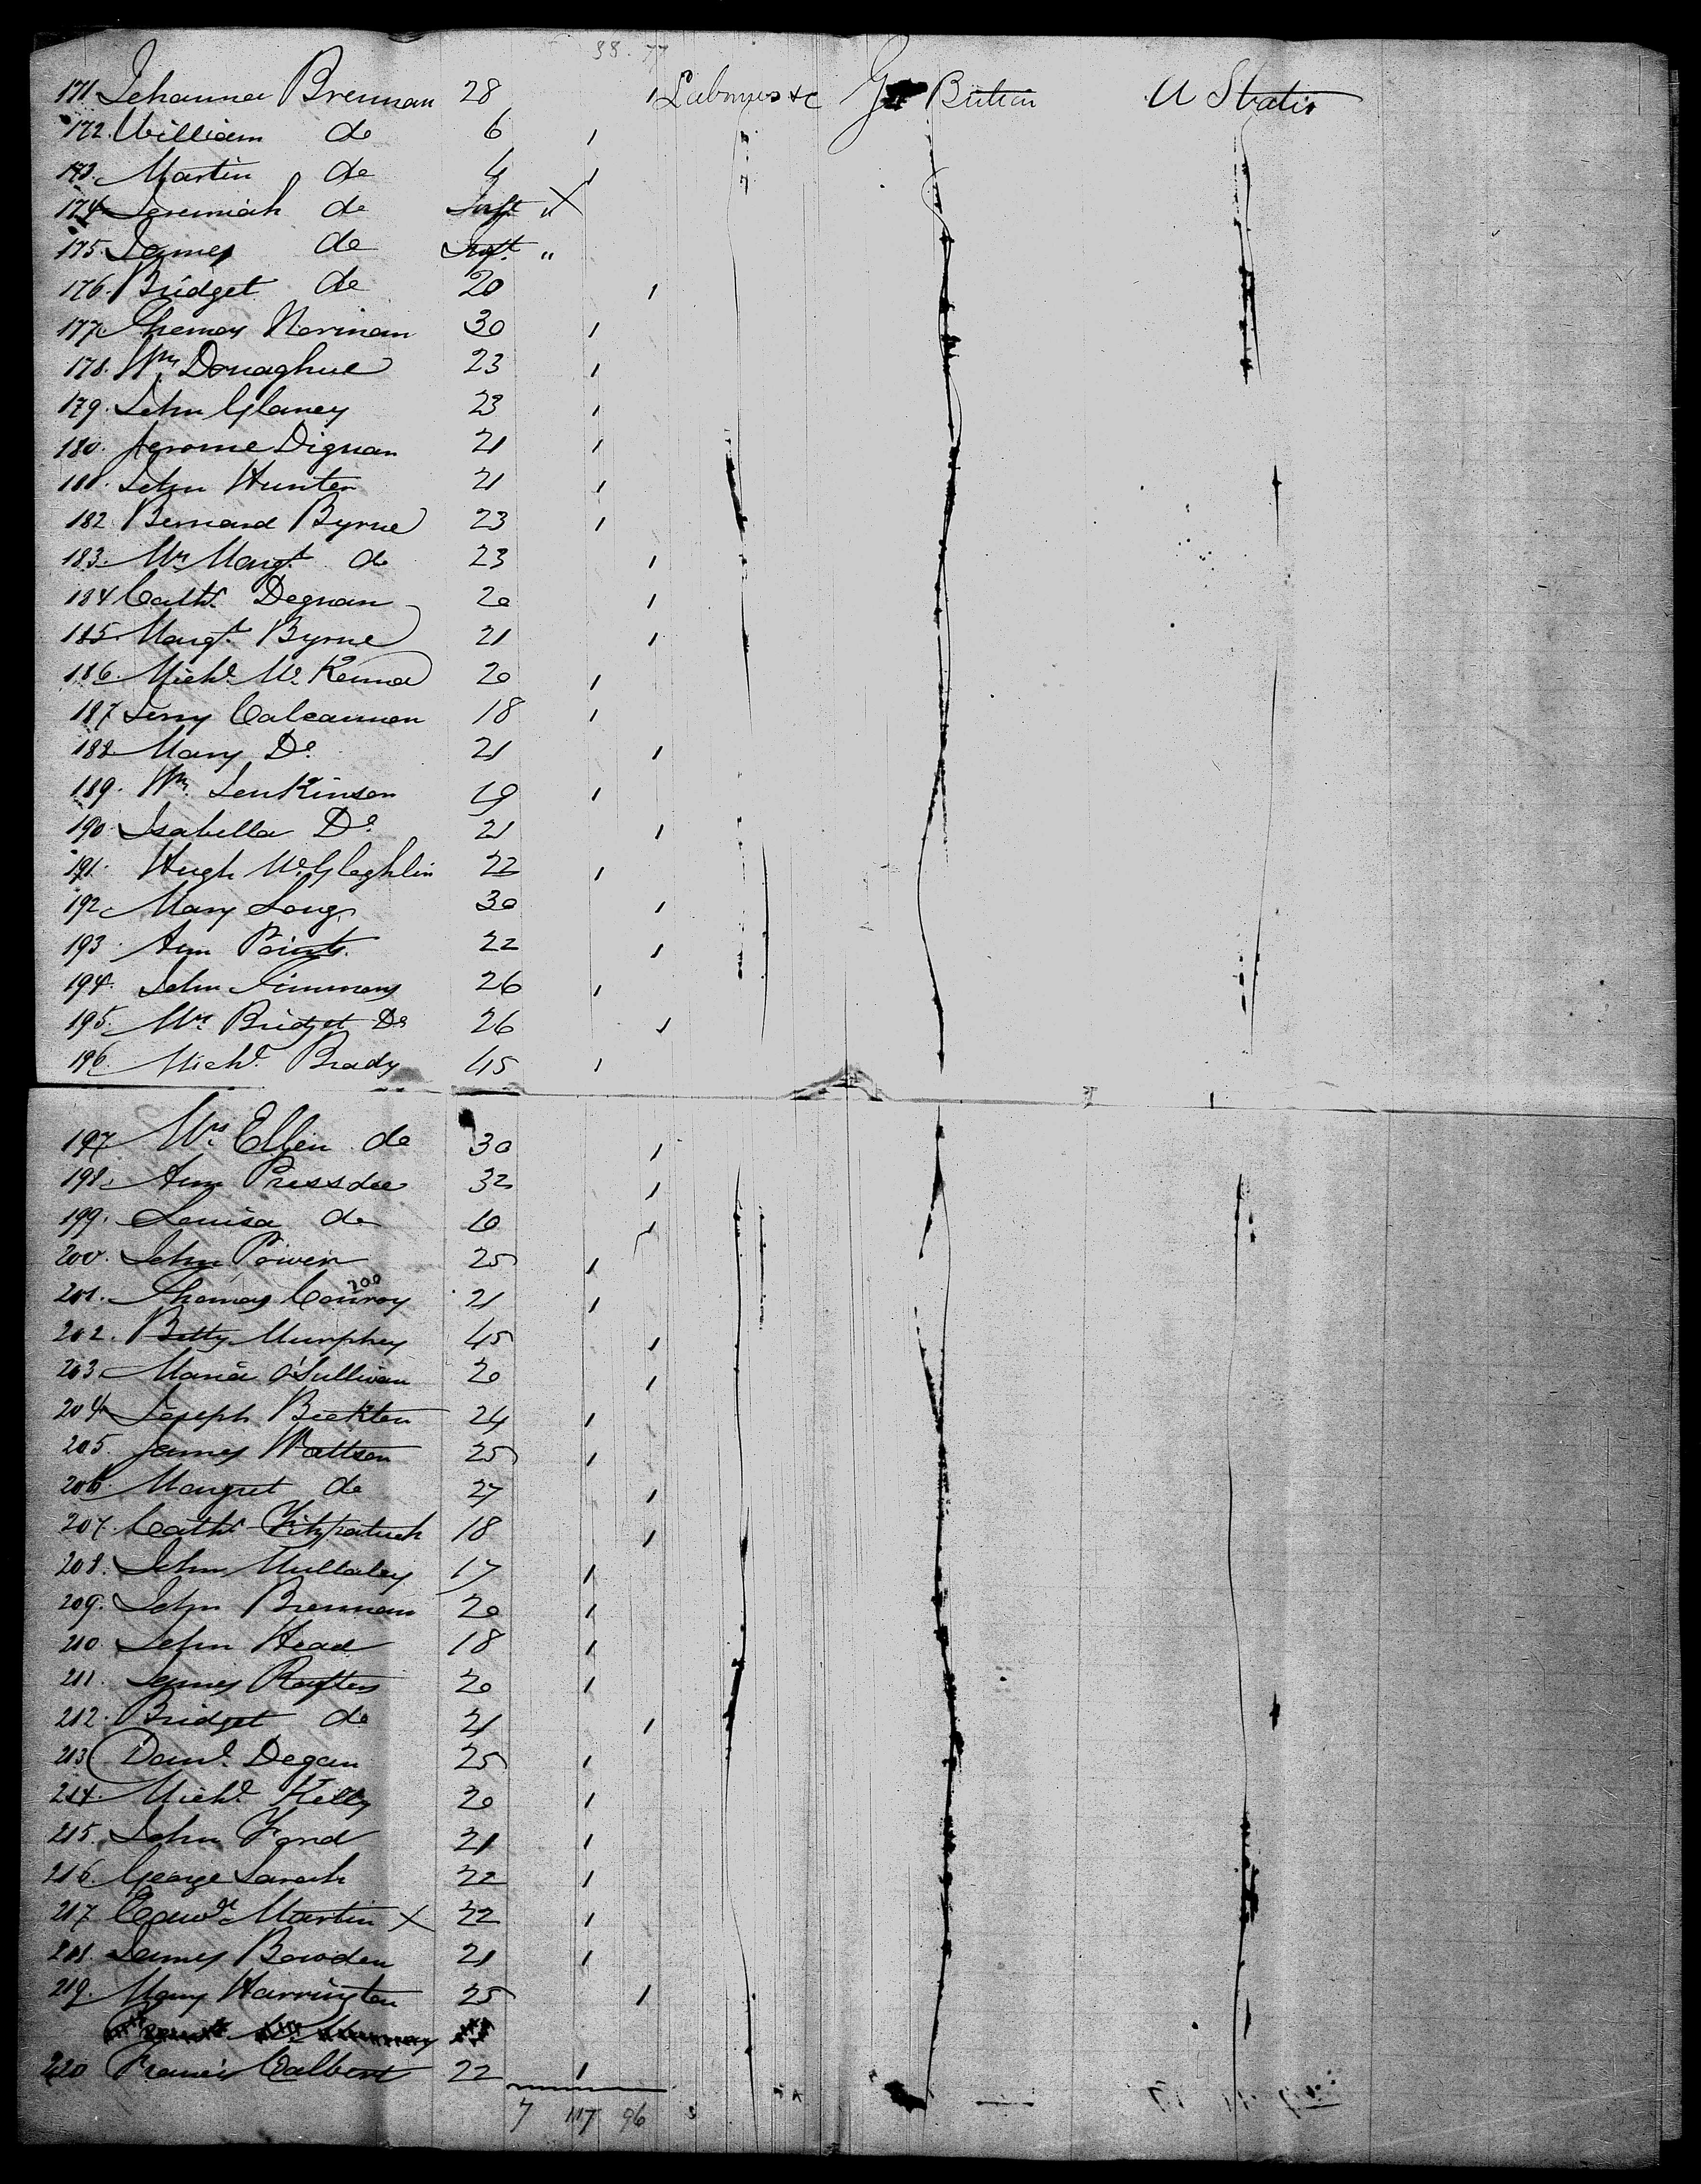 38. 77
171 Johanna Brennan 28 1 Labourers &c Gt Britain U States
172. William do 6 1
173. Martin do 4 1
174 Jeremiah do Inft " X
175. James do Inft. "
176. Bridget do 20 1
177. Thomas Norman 30 1
178. Wm Donaghue 23 1
179. John Glaney 23 1
180. Jerome Dignan 21 1
181. John Hunter 21 1
182. Bernard Byrne 23 1
183. Mrs Margt. do 23 1
184 Cathe. Degnan 20 1
185. Margt. Byrne 21 1
186. Michl. McKenna 20 1
187 Jerry Calcannon 18 1
188 Mary Do. 21 1
189. Wm. Jenkinson 19 1
190. Isabella Do. 21 1
191. Hugh McGloghlin 22 1
192 Mary Long 30 1
193. Ann Points. 22 1
194. John Timmons 26 1
195. Mrs. Bridget Do 26 1
196. Michl. Brady 45 1
197. Mrs. Ellen do 30 1
198. Ann Prissdee 32 1
199. Louisa do 10 1
200. John Power 25 1
201. Thomas Conroy 200 21 1
202. Betty Murphey 45 1
203 Maria O'Sullivan 20 1
204 Joseph Beckton 24 1
205. James Wattson 25 1
206. Margret do 27 1
207. Cathe. Fitzpatrick 18 1
208. John Mullaley 17 1
209. John Brennan 20 1
210. John Head 18 1
211. James Rafter 20 1
212. Bridget do 21 1
213 Danl. Degan 25 1
214. Michl. Kelly 20 1
215. John Ford 21 1
216. George Sarah 22 1
217 Edwd. Martin X 22 1
218. James Bowden 21 1
219. Mary Harrington 25 1
220 Francis Calbert 22 1
7 117 96